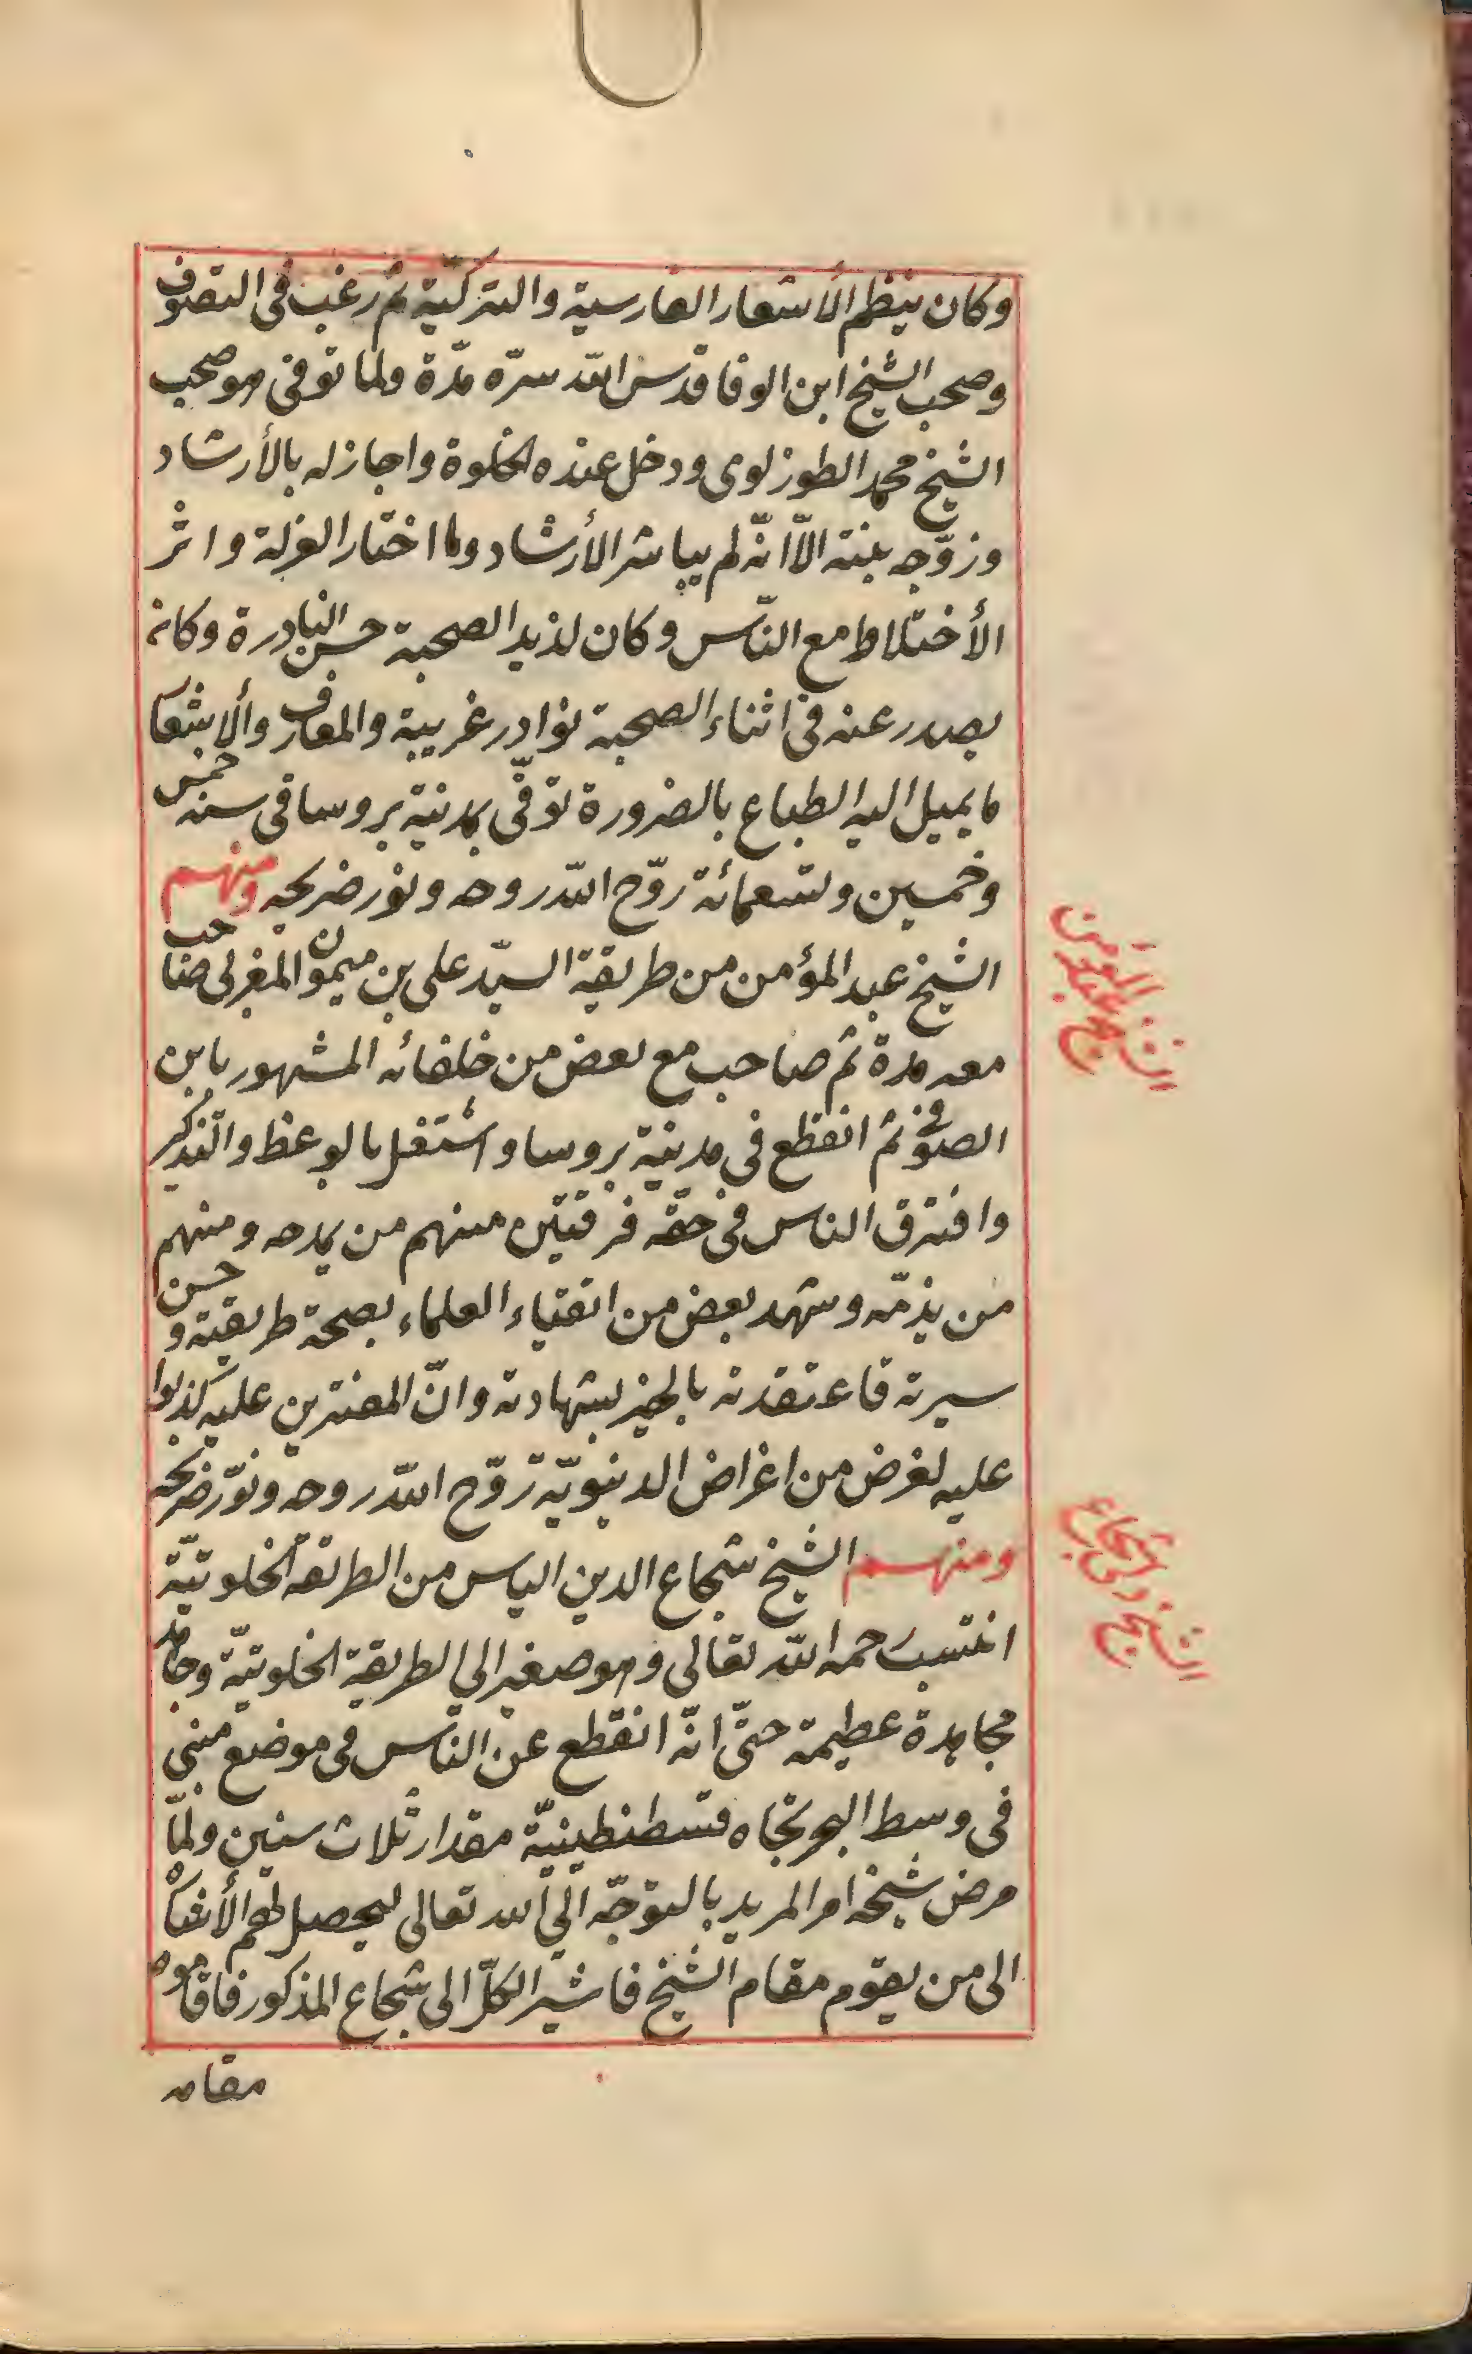 وكان ينظم الأشعار الفارسية والتركيّة ثم رغب فى التصوف
وصحب الشيخ ابن الوفا قدس الله سرّه مدّة ولما توفى هو صحب
الشيخ محمد الطوزلوى ودخل عنده الخلوة واجاز له بالأرشاد
وزوّجه بنته الاّ انّه لم يباشر الأرشاد ولما اختار العزلة واثر
الأختلاط مع النّاس وكان لذيد الصحبة حسن النادرة وكان
يصدر عنه فى اثناء الصحبة نوادر غريبة والمعارف والاشعا
ما يميل اليه الطباع بالضرورة توفّى بمدنية بروسا فى سنه خمس
وخمسين وتسعمائة روّح الله روحه ونور ضريحه ومنهم
الشيخ عبد المؤمن من طريقة السيّد على بن ميمون المغربى صاحب
معه مدة ثم صاحب مع بعض من خلفائه المشهور بابن
الصوفى ثم انقطع فى مدينة بروسا واشتغل بالوعظ والتذكير
وافترق الناس فى حقّه فرقتين منهم من يمدحه ومنهم
من يذمّه وشهد بعض من اتقياء العلماء بصحة طريقته وحسن
سيرته فاعتقدته بالخير بشهادته وانّ المفترين عليه كذبوا
عليه لغرض من اغراض الدنيويّة روّح الله روحه ونوّر ضريحه
ومنهم الشيخ شجاع الدين الياس من الطريقة الخلوتيّة
انتسب رحمه الله تعالى وهو صغير الى الطريقة الخلوتيّة وجاهد
مجاهدة عظيمة حتّى انّه انقطع عن النّاس فى موضع مبنى
فى وسط البحر تجاه قسطنطينيّة مقدار ثلاث سنين ولمّا
مرض شيخه امر المريد بالتوجّه الى الله تعالى ليحصل لهم الأشا
الى من يقوم مقام الشيخ فاشير الكلّ الى شجاع المذكور فاقاموه
مقامه
الشيخ عبد المؤمن